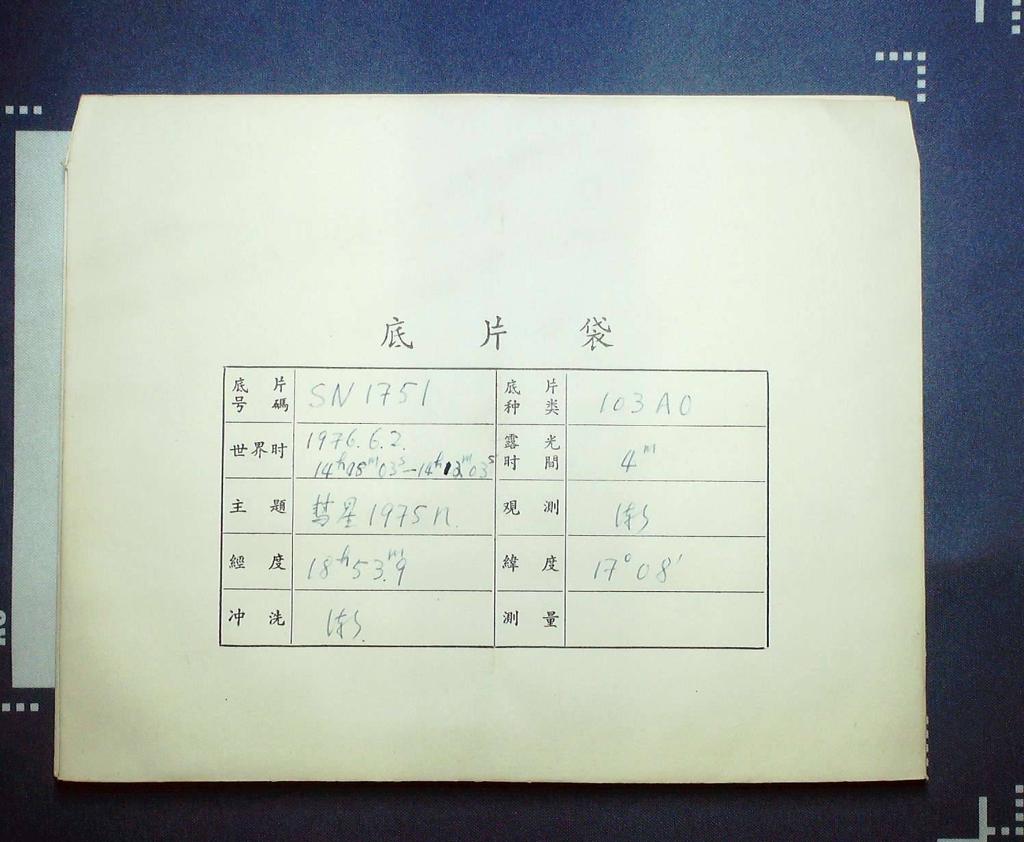 底片袋
底片号碼 SN1751 底片种类 103AO
世界时 1976.6.2. 露光时間 4ᵐ
14ʰ08ᵐ03ˢ—14ʰ12ᵐ03ˢ
主題 彗星1975n. 观測
經度 18ʰ53ᵐ.9 緯度 17°08′
冲洗 測量